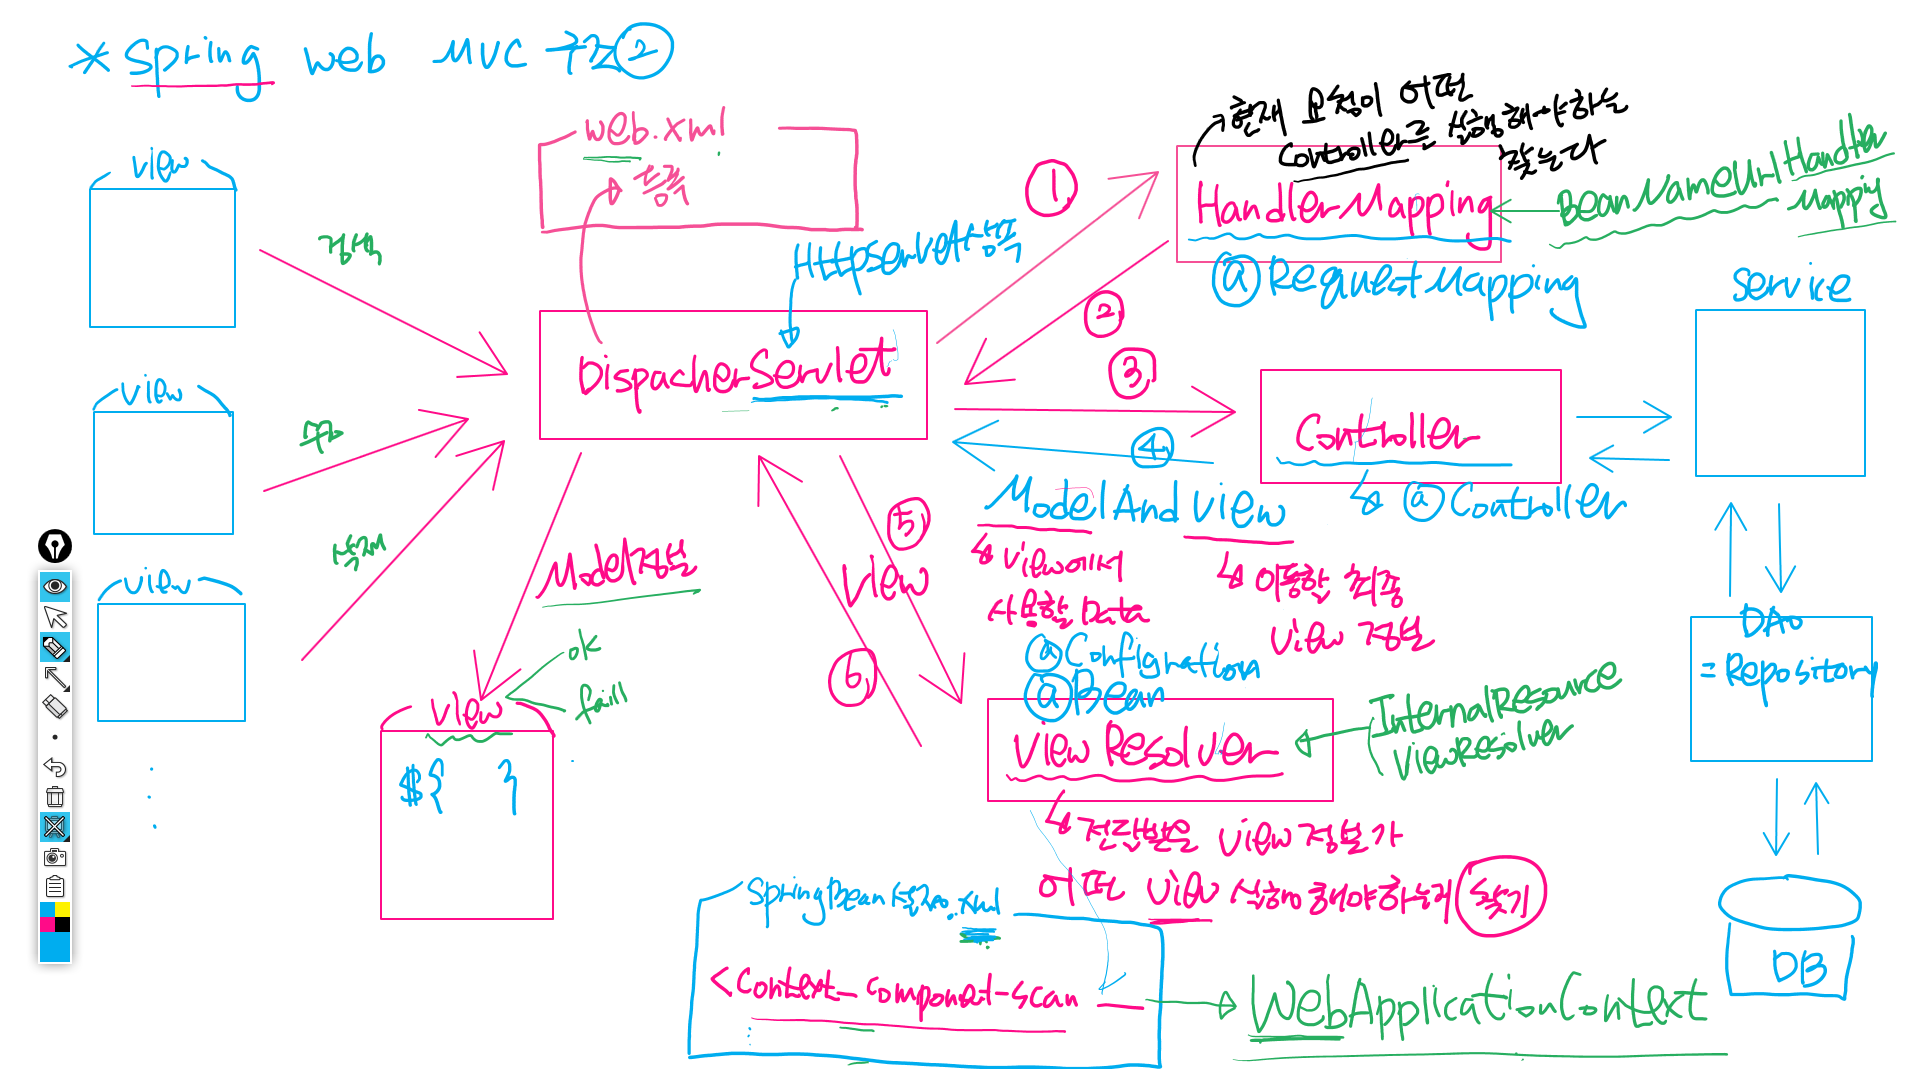 * Spring web MVC 구조 ②
view
검색
view
수정
삭제
view
web.xml
등록
HttpServlet상속
DispacherServlet
①
②
③
④
⑤
⑥
현재 요청이 어떤
Controller를 실행해야하는
찾는다
HandlerMapping
BeanNameUrlHandler
Mapping
@RequestMapping
Controller
@Controller
Service
DAO
= Repository
DB
ModelAndView
View에서
사용할 Data
이동할 최종
View 정보
Model정보
View
view
ok
faill
${ }
@Configration
@Bean
View Resolver
InternalResource
ViewResolver
전달받은 view 정보가
어떤 view 실행해야하는지 찾기
SpringBean설정.xml
<Context_componet-scan
WebApplicationContext